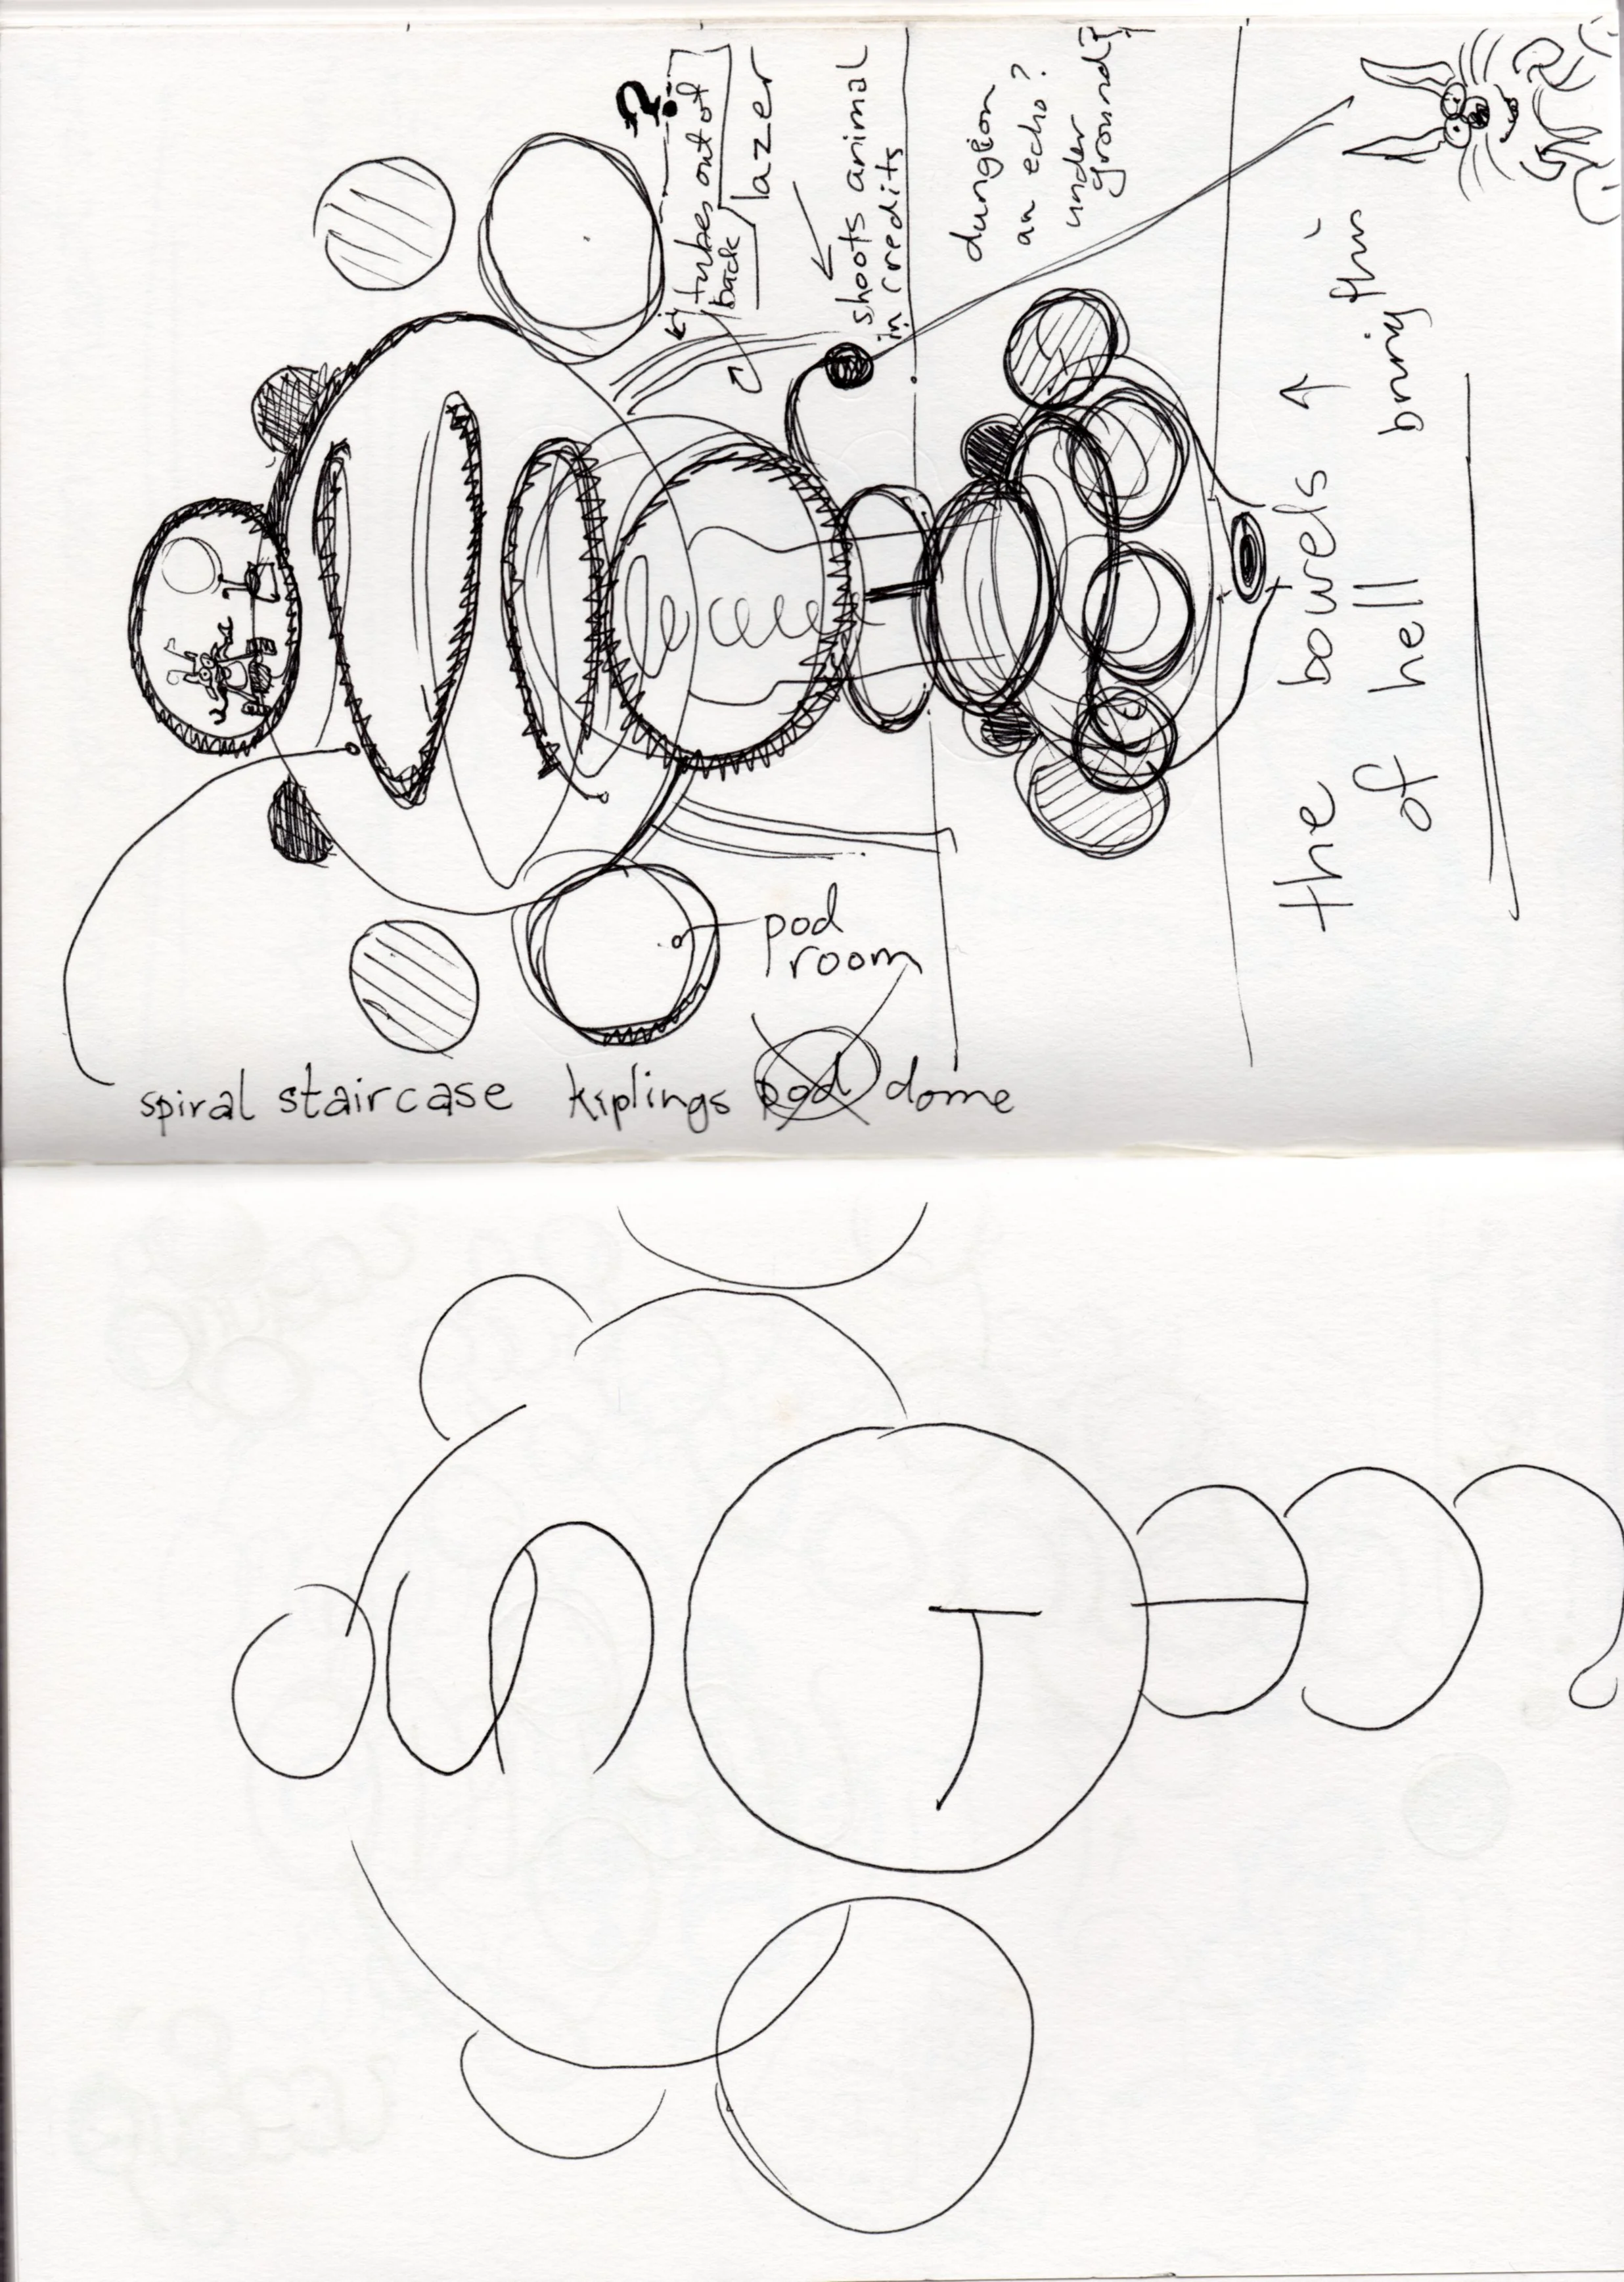 ?
tubes out of
back
lazer
shoots animal
in credits
dungion
an echo?
under
ground?
the bowels
of hell
pod
room
spiral staircase kiplings pod dome